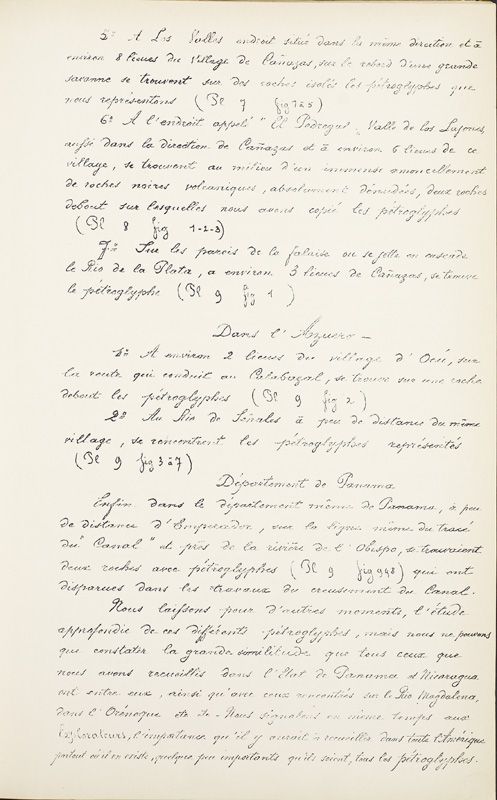 5º A Los Valles endroit situé dans la même direction et à
environ 8 lieues du village de Cañazas, sur le rebord d'une grande
savanne se trouvent sur des roches isolés les pétroglyphes que
nous représentons (Pl 7 fig 1 à 5)
6º A l'endroit appelé "El Pedregal" Valle de los Lajones,
aussi dans la direction de Cañazas et à environ 6 lieues de ce
village, se trouvent au milieu d'un immense amoncellement
de roches noires volcaniques, absolument dénudées, deux roches
debout sur lesquelles nous avons copié les pétroglyphes
(Pl 8 fig 1-2-3)
7º Sur les parois de la falaise ou se jette en cascade
le Rio de la Plata, a environ 3 lieues de Cañazas, se trouve
le pétroglyphe (Pl 9 fig 1)
Dans l'Azuero —
1º A environ 2 lieues du village d'Ocú, sur
la route qui conduit au Calabazal, se trouve sur une roche
debout les pétroglyphes (Pl 9 fig 2)
2º Au Rio de Señales à peu de distance du même
village, se rencontrent les pétroglyphes représentés
(Pl 9 fig 3 à 7)
Département de Panama
Enfin dans le département même de Panama, à peu
de distance d'Emperador, sur la ligne même du tracé
du "Canal" et près de la rivière de l'Obispo, se trouvaient
deux roches avec pétroglyphes (Pl 9 fig 9 & 8) qui ont
disparues dans les travaux du creusement du Canal.
Nous laissons pour d'autres moments, l'étude
approfondie de ces différents pétroglyphes, mais nous ne pouvons
que constater la grande similitude que tous ceux que
nous avons recueillis dans l'Etat de Panama et Nicaragua
ont entre eux, ainsi qu'avec ceux rencontrés sur le Rio Magdalena,
dans l'Orénoque etc etc - Nous signalons en même temps aux
Explorateurs, l'importance qu'il y aurait à recueillir dans toute l'Amérique
partout où il en existe, quelque peu importants qu'ils soient, tous les pétroglyphes.